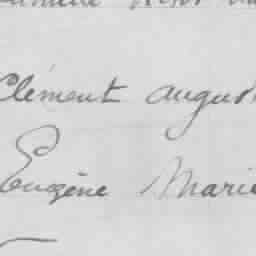 Clément August
Eugène Marie